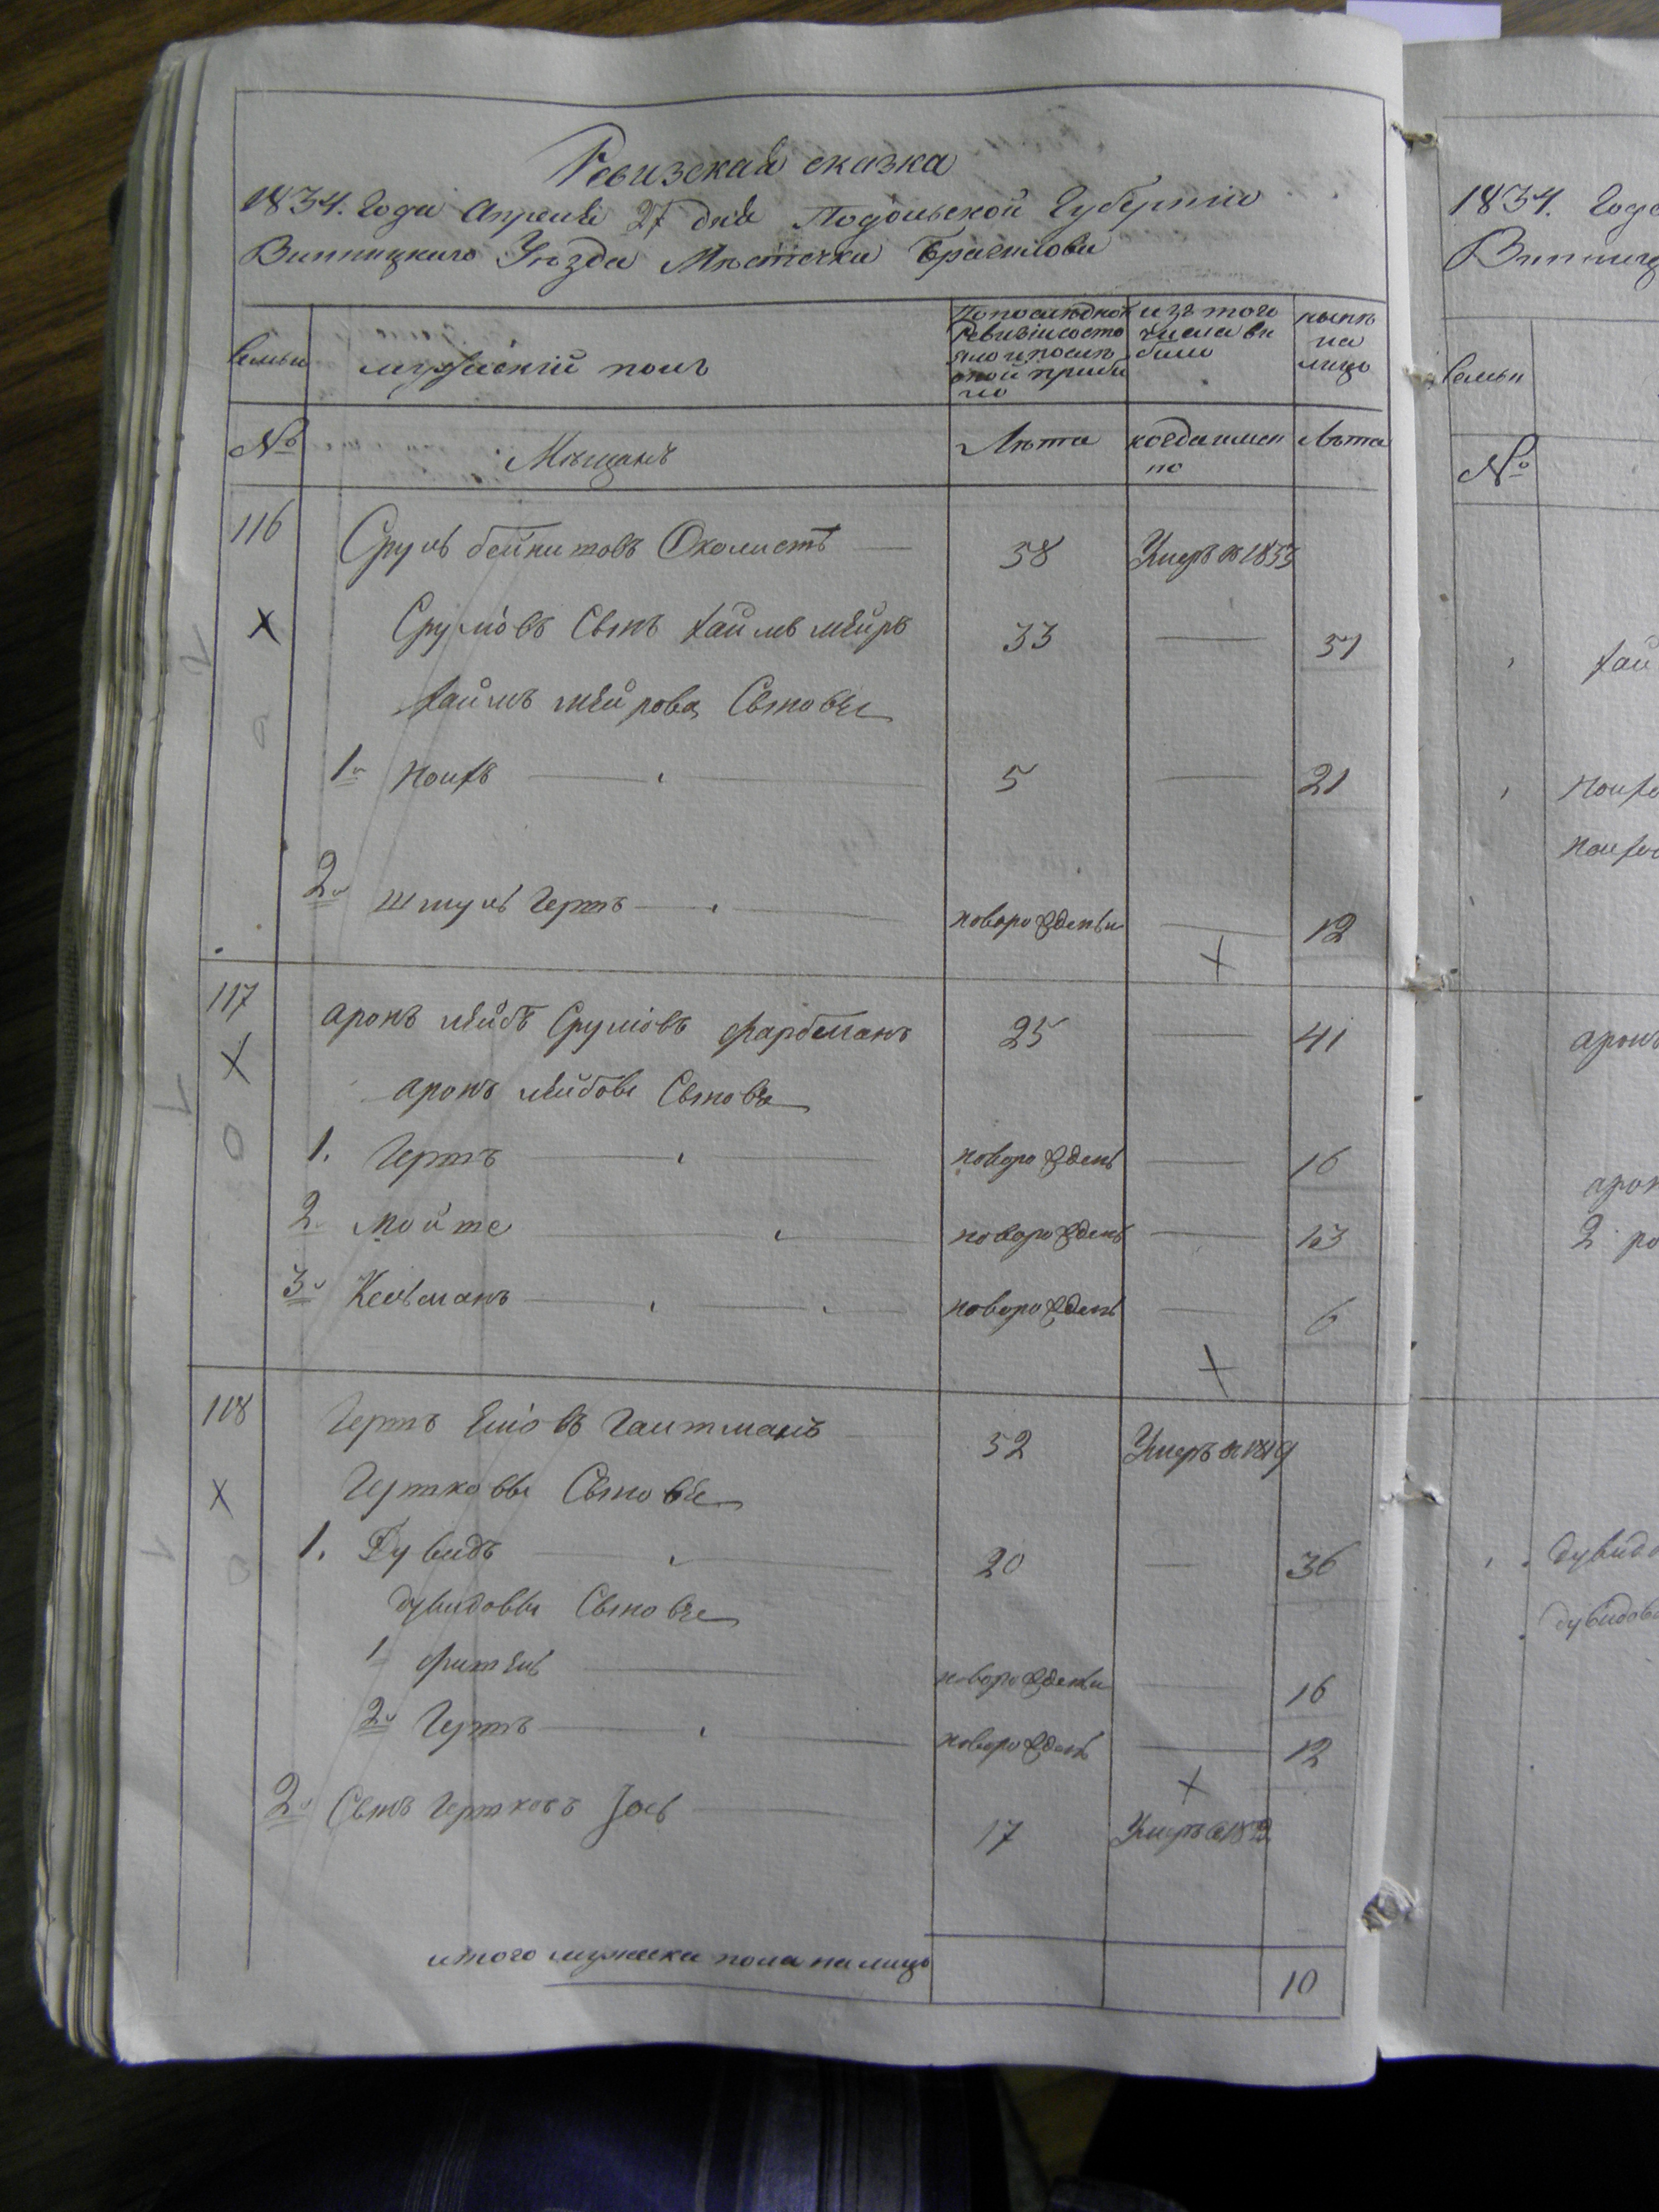 Ревизская сказка
1834. Года Апреля 27 дня Подольской Губернии
Винницкаго Уезда Местечка Браилова
Семьи
мужескій полъ
По последной ревизіи состояло и после оной прибыло
изъ того числа выбыло
ныне на лицо
№
Мещанъ
Лета
когда именно
Лета
116
Сруль Околистъ
58
Умеръ въ 1833
Срулiовъ Сынъ Хаимъ Мейръ
33
51
Хаимъ Мейрова Сыновья
1й
5
21
2й
Шмуль Гершъ
новорожденный
12
117
Аронъ Лейбъ Срулiовъ Фарберманъ
25
41
Аронъ Лейбовы Сыновья
1. Гершъ
новорожденъ
16
2
новорожденъ
13
3й Кельманъ
новорожденъ
6
118
Гершъ
52
Умеръ въ 1819
Гершковы Сыновья
1. Дувидъ
20
36
Дувидовы Сыновья
1
новорожденны
16
2й Гершъ
новорожденъ
12
2й Сынъ Гершковъ Іось
17
Умеръ
итого мужеска пола на лицо
10
1834. Года
Винниц
Семьи
№
Хаи
Аронъ
Арон
2
Дувидо
Дувидовы